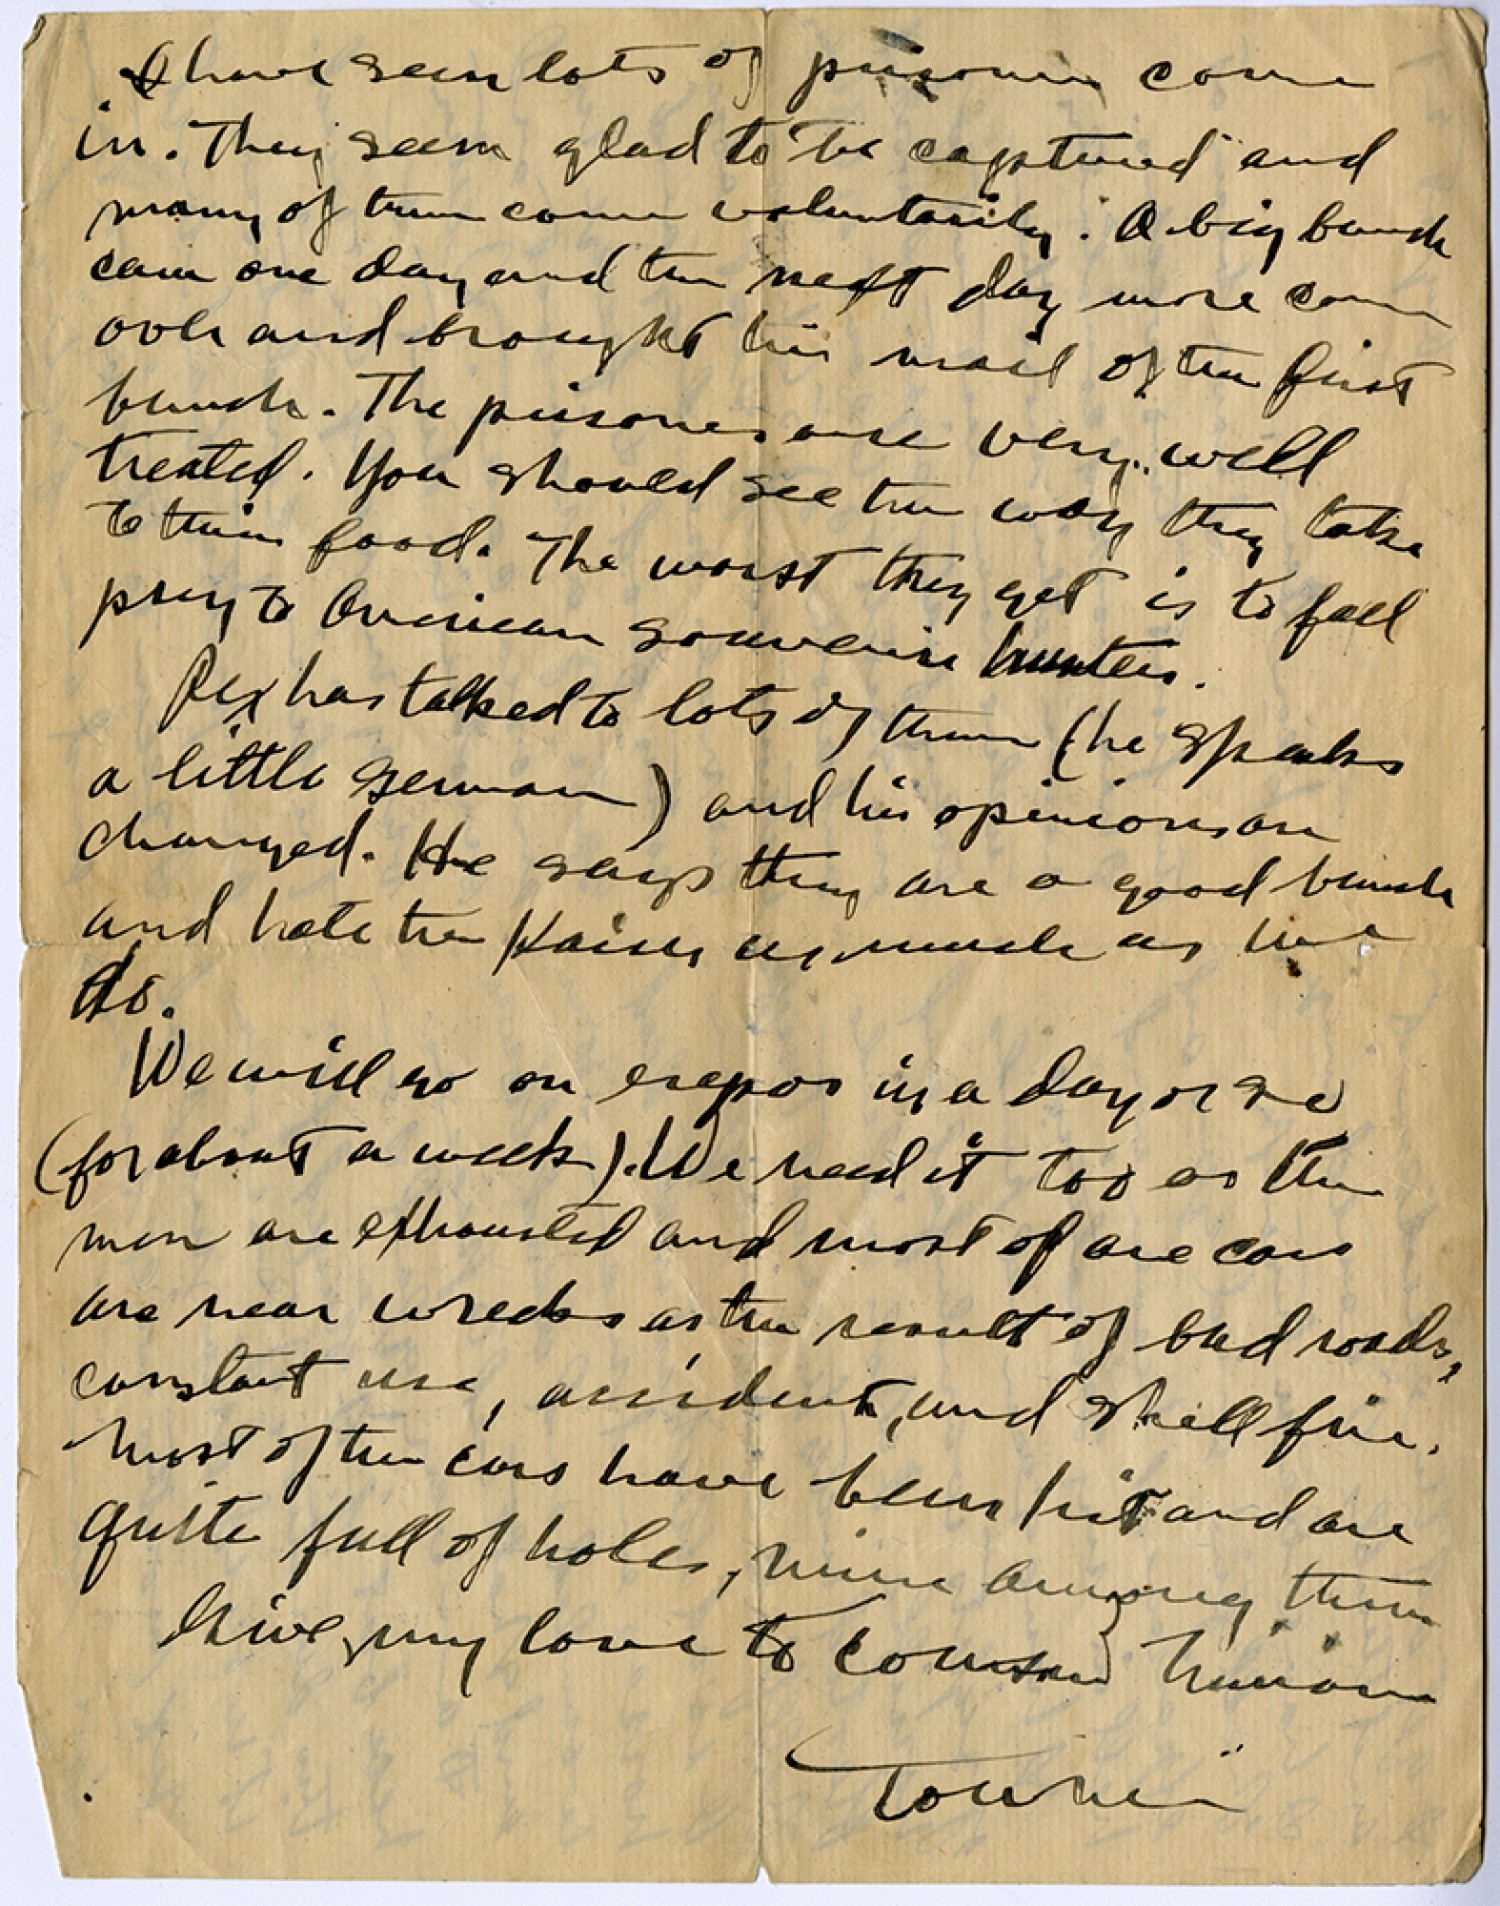 I have seen lots of prisoners come
in. They seem glad to be captured and
many of them come voluntarily. A big bunch
came one day and the next day more came
over and brought the mail of the first
bunch. The prisoners are very well
treated. You should see the way they take
to their food. The worst they get is to fall
prey to American souvenir hunters.
Rex has talked to lots of them (he speaks
a little German) and his opinions are
changed. He says they are a good bunch
and hate the Kaiser as much as we
do.
We will go on repos in a day or so
(for about a week). We need it too as the
men are exhausted and most of are cars
are near wrecks as the result of bad roads,
constant use, accidents, and shell fire.
Most of the cars have been hit and are
quite full of holes, mine among them
Give my love to Cousin